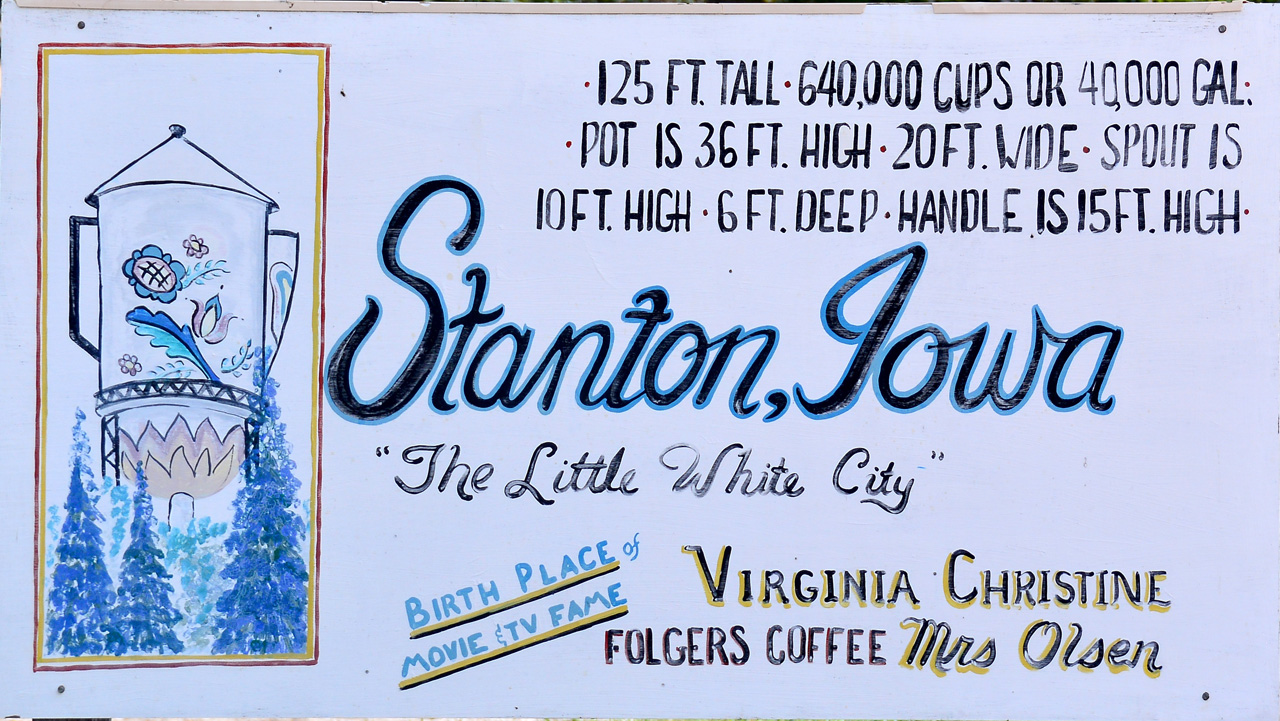 ·125 FT. TALL·640,000 CUPS OR 40,000 GAL:
·POT IS 36 FT. HIGH·20 FT. WIDE·SPOUT IS
10 FT. HIGH·6 FT. DEEP·HANDLE IS 15 FT. HIGH·
Stanton, Iowa
"The Little White City"
BIRTH PLACE of
MOVIE & TV FAME
VIRGINIA CHRISTINE
FOLGERS COFFEE Mrs Olsen